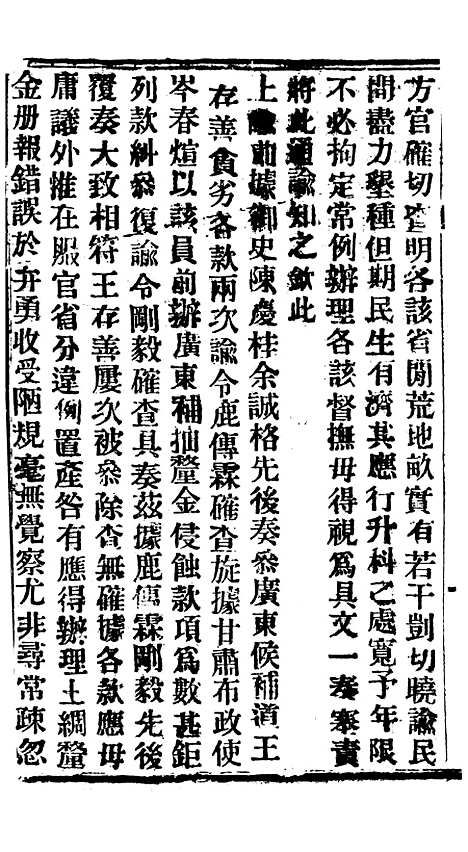 方官確切查明各該省閒荒地畝實有若干剴切曉諭民
間盡力墾種但期民生有濟其應行升科之處寬予年限
不必拘定常例辦理各該督撫毋得視爲具文一奏塞責
將此通諭知之欽此
上諭前據御史陳慶桂余誠格先後奏叅廣東候補道王
存善貪劣各款兩次諭令鹿傳霖確查旋據甘肅布政使
岑春煊以該員前辦廣東補抽釐金侵蝕款項爲數甚鉅
列款糾叅復諭令剛毅確查具奏茲據鹿傳霖剛毅先後
覆奏大致相符王存善屢次被叅除查無確據各款應毋
庸議外惟在服官省分違例置產咎有應得辦理土綢釐
金册報錯誤於弁勇收受陋規毫無覺察尤非尋常疎忽